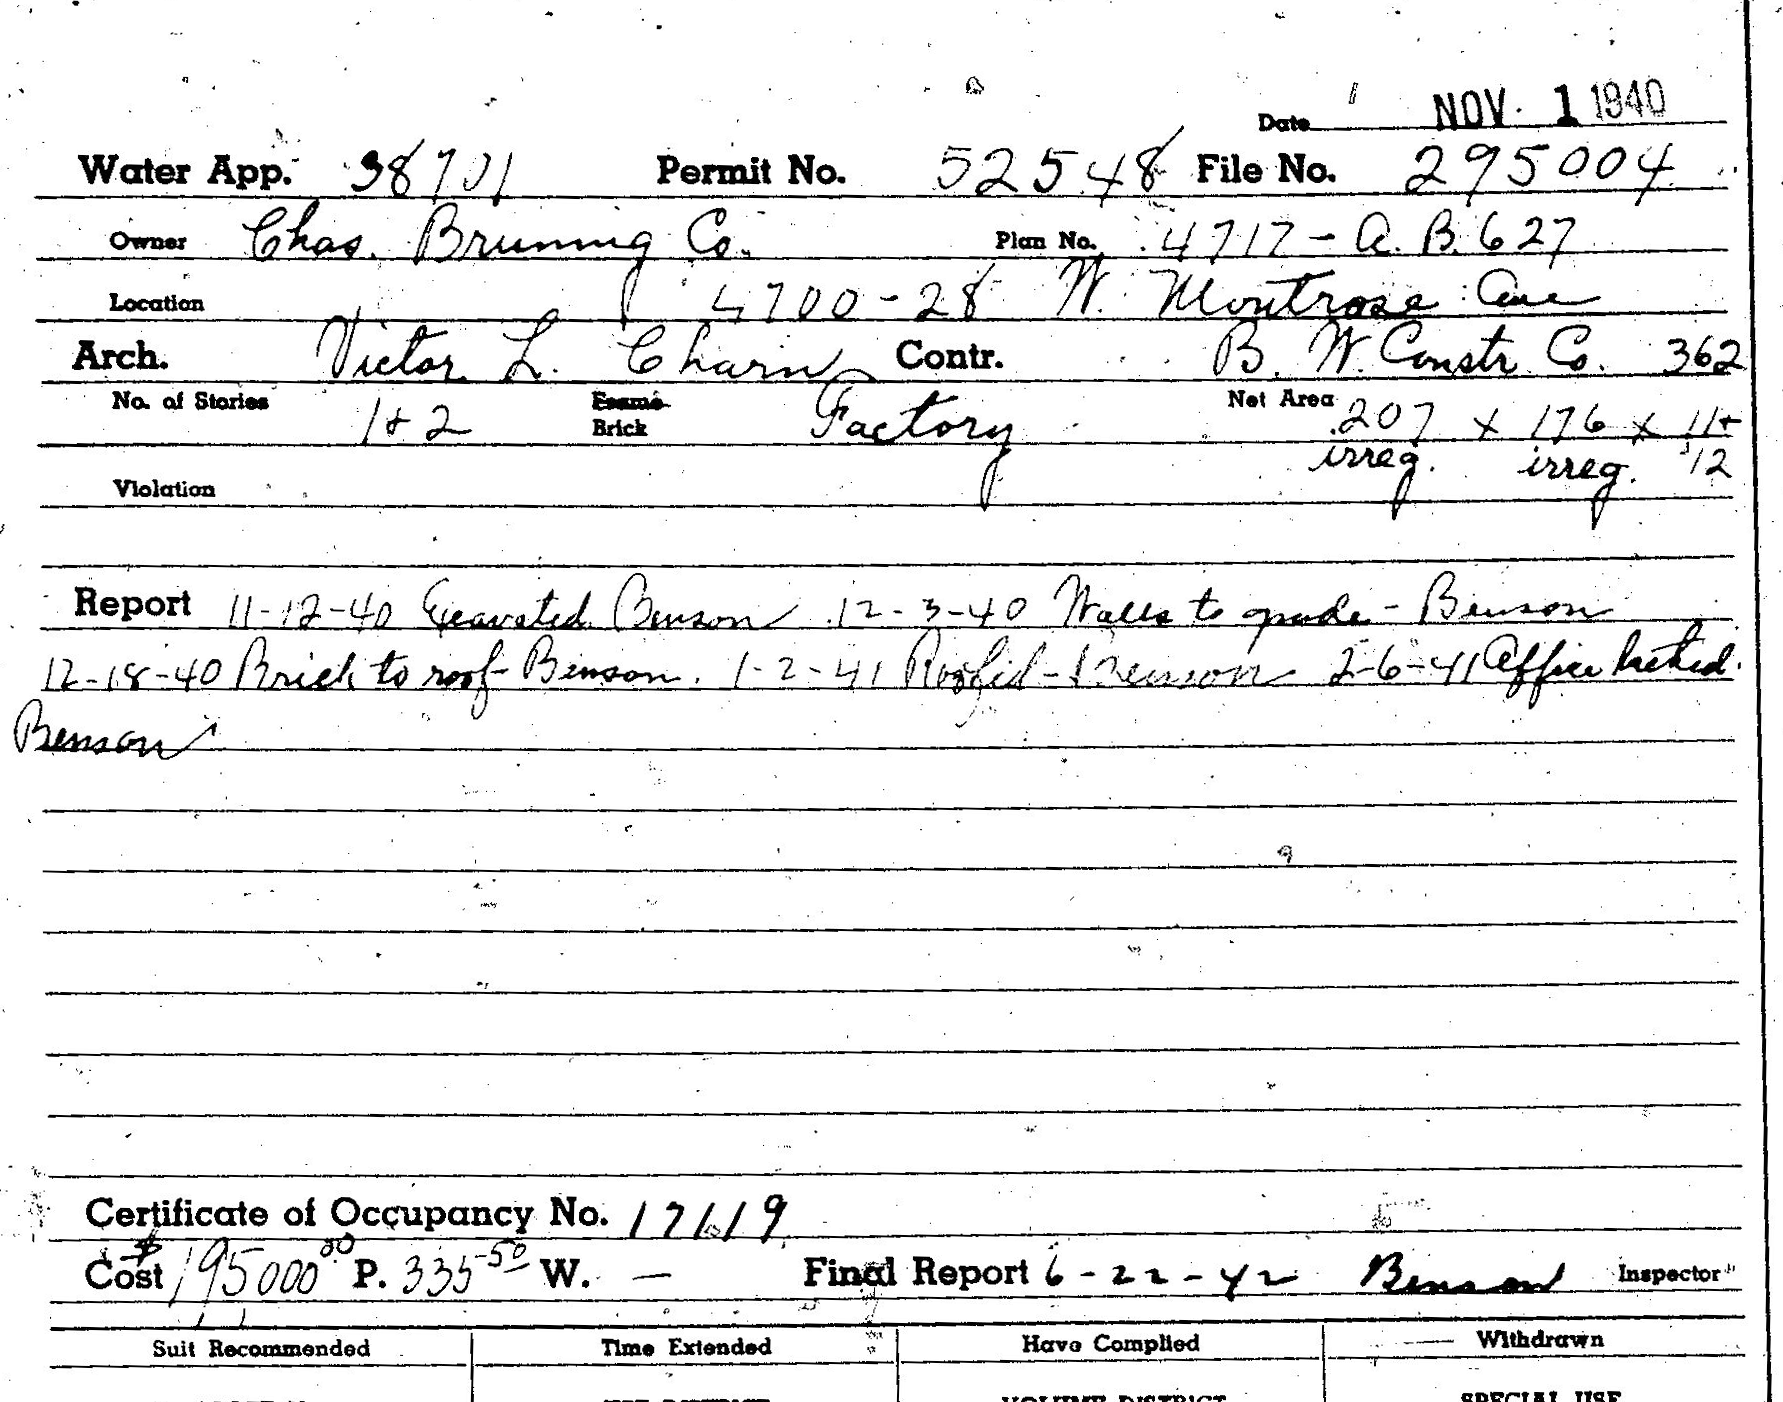 Date NOV. 1 1940
Water App. 38701 Permit No. 52548 File No. 295004
Owner Chas. Bruning Co. Plan No. 4717-A.B.627
Location 4700-28 W. Montrose Ave
Arch. Victor L. Charn Contr. B. W. Constr. Co. 362
No. of Stories 1+2 Frame Brick Factory Net Area 207 x 176 x 11+
irreg. irreg. 12
Violation
Report 11-12-40 Excavated Benson 12-3-40 Walls to grade - Benson
12-18-40 Brick to roof - Benson. 1-2-41 Roofed - Benson 2-6-41 Office
Benson
Certificate of Occupancy No. 17119
Cost $195000.00 P. 335-50 W. — Final Report 6-22-42 Benson Inspector
Suit Recommended Time Extended Have Complied Withdrawn
VOLUME DISTRICT SPECIAL USE